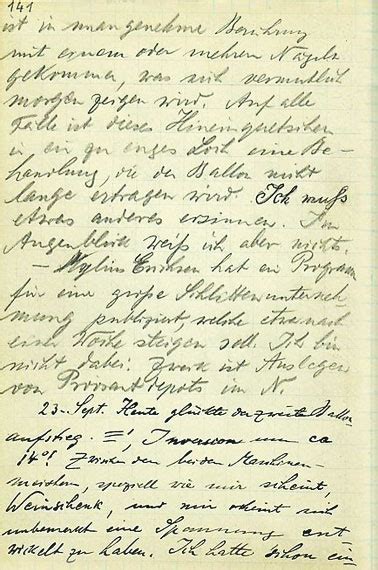 141
ist in unangenehme Berührung
mit einem oder mehren Nägeln
gekommen, was sich vermutlich
morgen zeigen wird. Auf alle
Fälle ist dieses Hineinquetschen
in ein zu enges Loch eine Be-
handlung, die der Ballon nicht
lange ertragen wird. Ich muß
etwas anderes ersinnen. Im
Augenblick weiß ich aber nichts.
– Mylius Erichsen hat ein Programm
für eine große Schlittenunterneh-
mung publiziert, welche etwa nach
einer Woche steigen soll. Ich bin
nicht dabei. Zweck ist Auslegen
von Proviantdepots im N.
23. Sept. Heute glückte der zweite Ballon
aufstieg. ≡!, Inversion um ca
14°! Zwischen den beiden Maschinen-
meistern, speziell wie mir scheint,
Weinschenk, und mir scheint sich
unbemerkt eine Spannung ent
wickelt zu haben. Ich hatte schon ein-